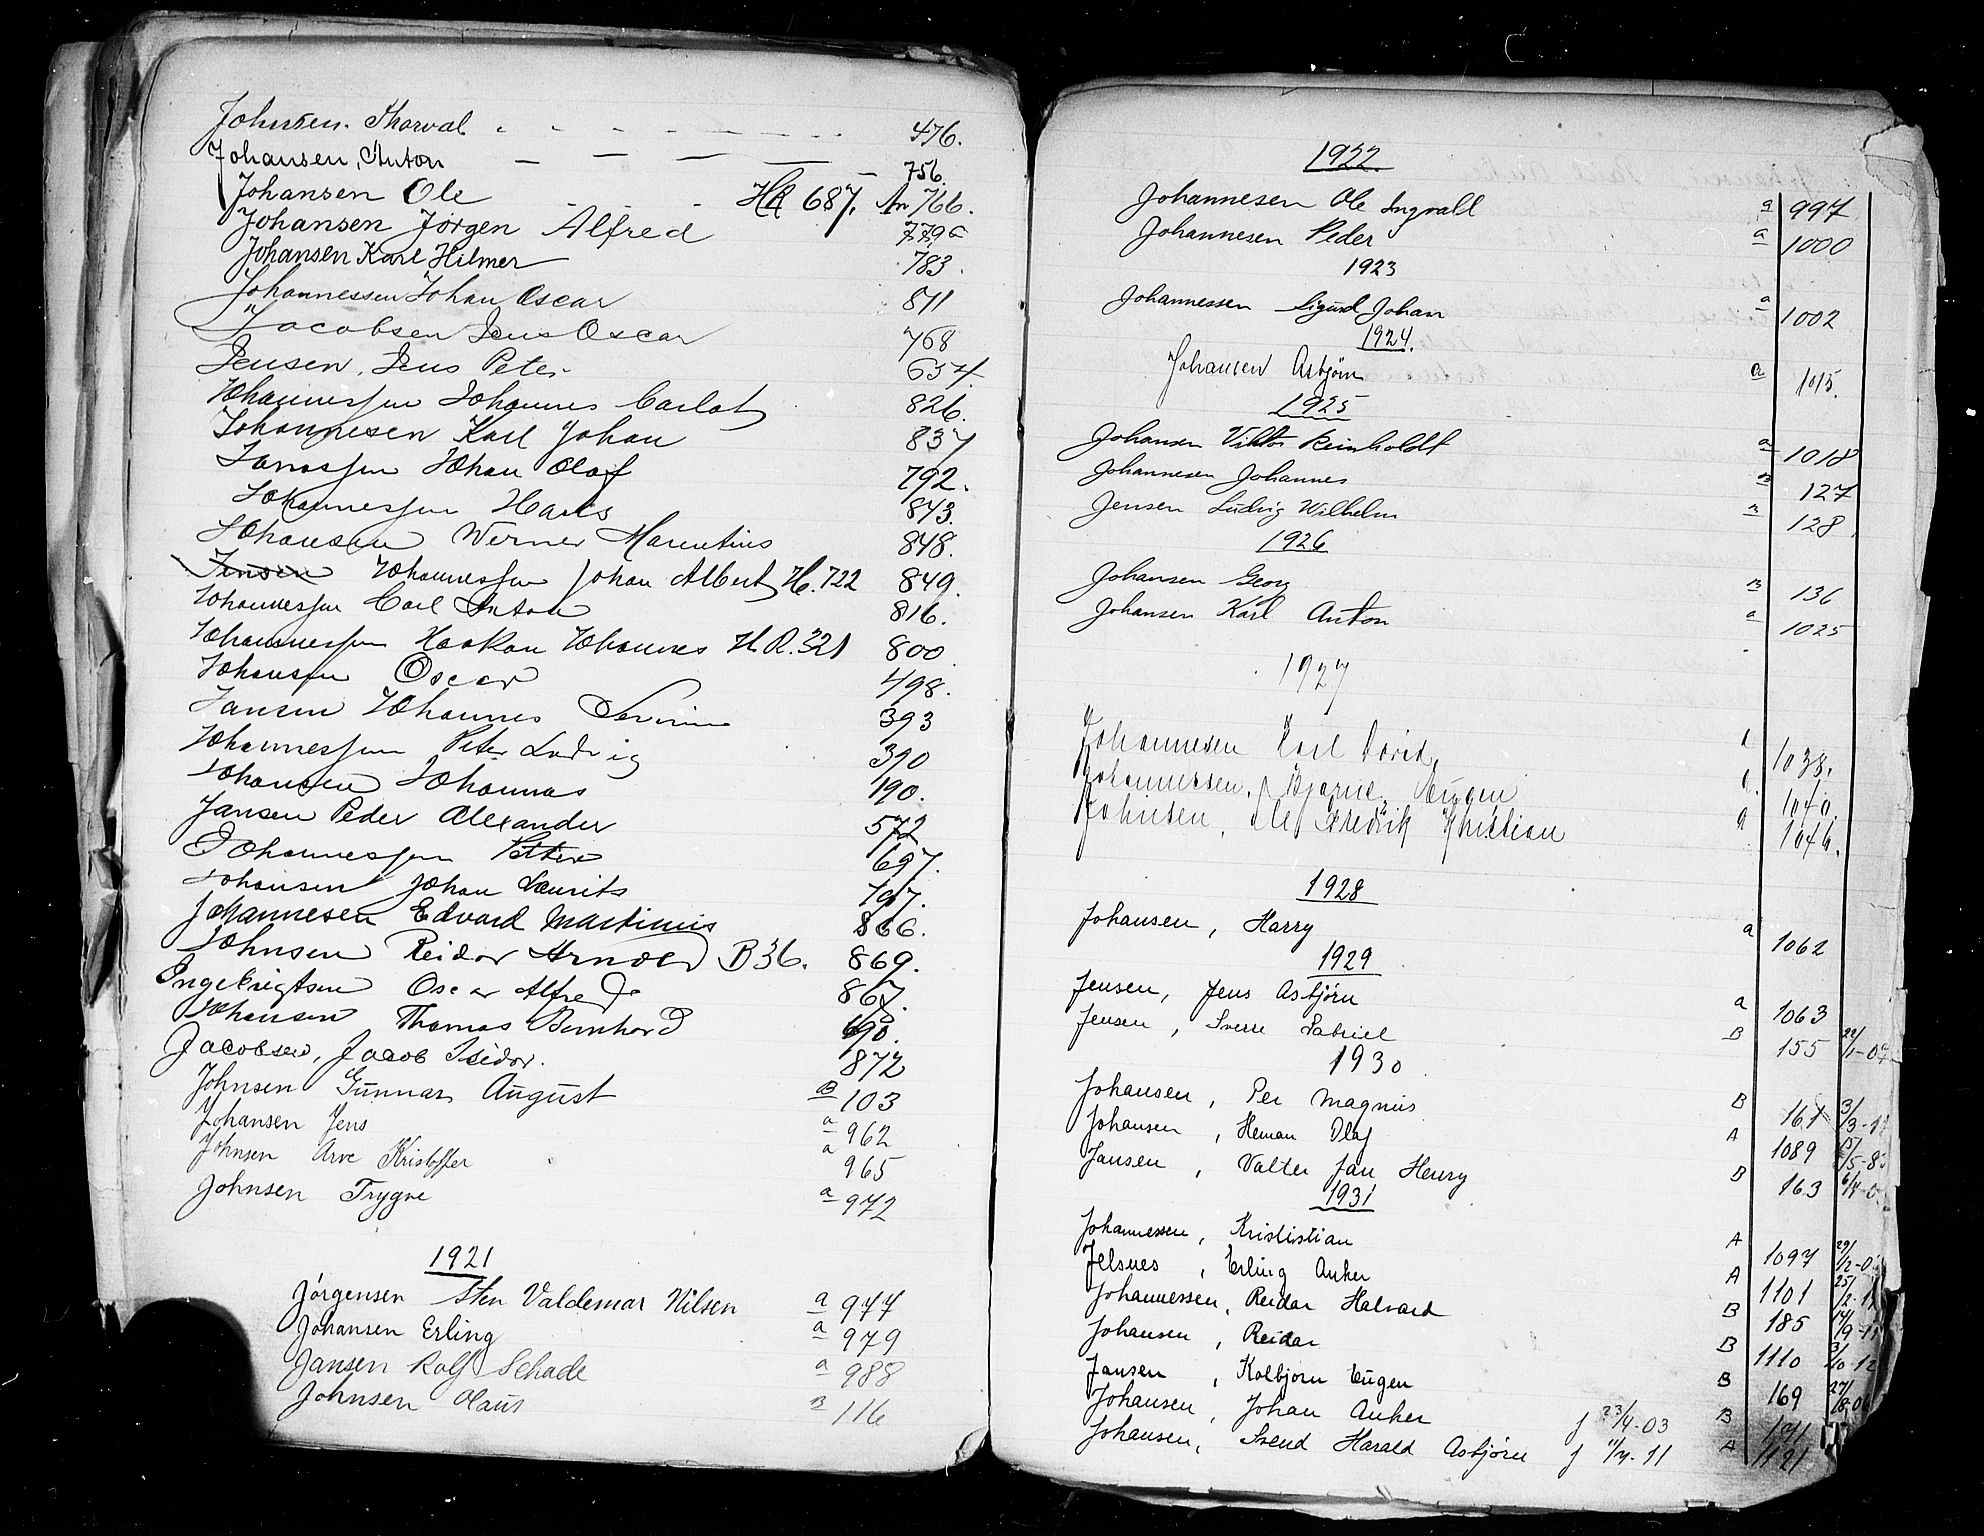 Johnsen. Thorval 476.
Johansen, Anton 756.
Johansen Ole HR 687. An 766.
Johansen Jørgen Alfred 779a
Johansen Karl Hilmer 783.
Johannessen Johan Oscar 811
Jacobsen Jens Oscar 768
Jensen, Jens Peter 634.
Johannessen Johannes Carlot 826.
Johannesen Karl Johan 837
Johan Olaf 792.
Johannessen Hans 843.
Johansen Werner Marentius 848.
Jensen Johannessen Johan Albert H. 722 849.
Johannessen Carl Anton 816.
Johannessen Haakon Johannes H.R. 321 800.
Johansen Oscar 498.
Jansen Johannes 393
Johannessen Peter Ludvig 390
Johansen Johannes 190.
Jansen Peder Alexander 572
Johannessen Petter 697.
Johansen Johan Laurits 797.
Johannesen Edvard Martinius 866.
Johnsen Reidar Arnold B 36. 869.
Ingebrigtsen Oscar Alfred 867.
Johansen Thomas Bernhard 690.
Jacobsen, Jacob Isidor. 872
Johnsen Gunnar August B 103
Johansen Jens a 962
Johnsen Arve Kristoffer a 965
Johnsen Trygve a 972
1921
Jørgensen Sten Valdemar Nilsen a 977
Johansen Erling a 979
Jansen Rolf Schade a 988
Johnsen Olaus B 116
1922
Johannesen Ole Ingvald a 997
Johannesen Peder a 1000
1923
Johannessen Sigurd Johan a 1002
1924.
Johansen Asbjørn a 1015.
1925
Johansen Viktor Reinholdt a 1018
Johannesen Johannes B 127
Jensen Ludvig Wilhelm B 128
1926
Johansen Georg B 136
Johansen Karl Anton a 1025
1927
Johannesen Karl David. 1038.
Johannessen, Bjarne Eugen 1040.
Johnsen, Ole Fredrik Khristian a 1046.
1928
Johansen, Harry a 1062
1929
Jensen, Jens Asbjørn a 1063
Jensen, Sverre Gabriel B 155
1930
Johansen, Per Magnus B 161
Johansen, Heman Olaf A 1089
Jansen, Valter Jan Henry B 163
1931
Johannessen, Krististian A 1097
Jelsnes, Erling Anker A 1101
Johannessen, Reidar Halvard B 185
Johansen, Reidar B 1110
Jansen, Kolbjørn Eugen B 169
Johansen, Johan Anker f 23/4-03 B 171
Johansen, Svend Harald Asbjørn f 11/4-11 A 1121